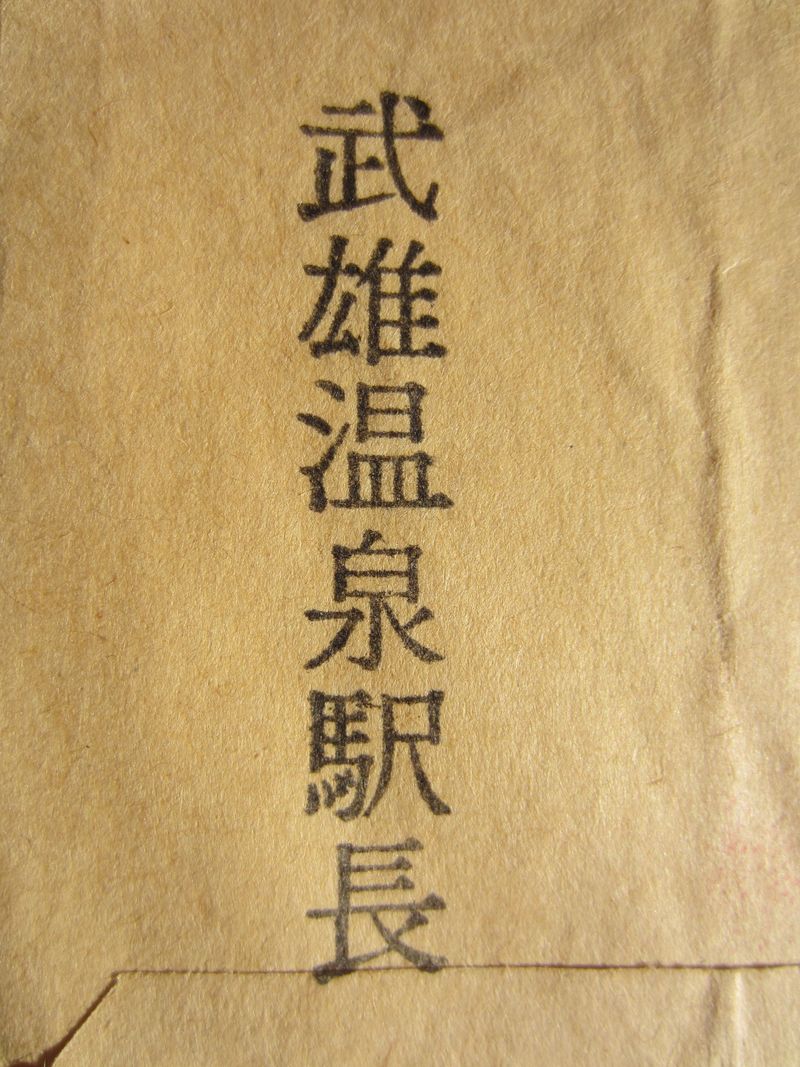 武雄温泉駅長